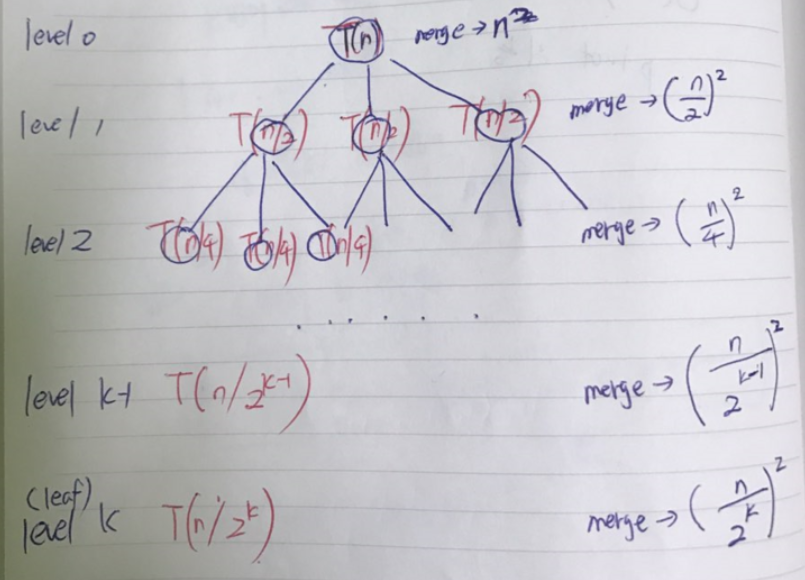 level 0 T(n) merge → n²
level 1 T(n/2) T(n/2) T(n/2) merge → (n/2)²
level 2 T(n/4) T(n/4) T(n/4) merge → (n/4)²
. . . . . .
level k-1 T(n/2^(k-1)) merge → (n/2^(k-1))²
(leaf)
level k T(n/2^k) merge → (n/2^k)²